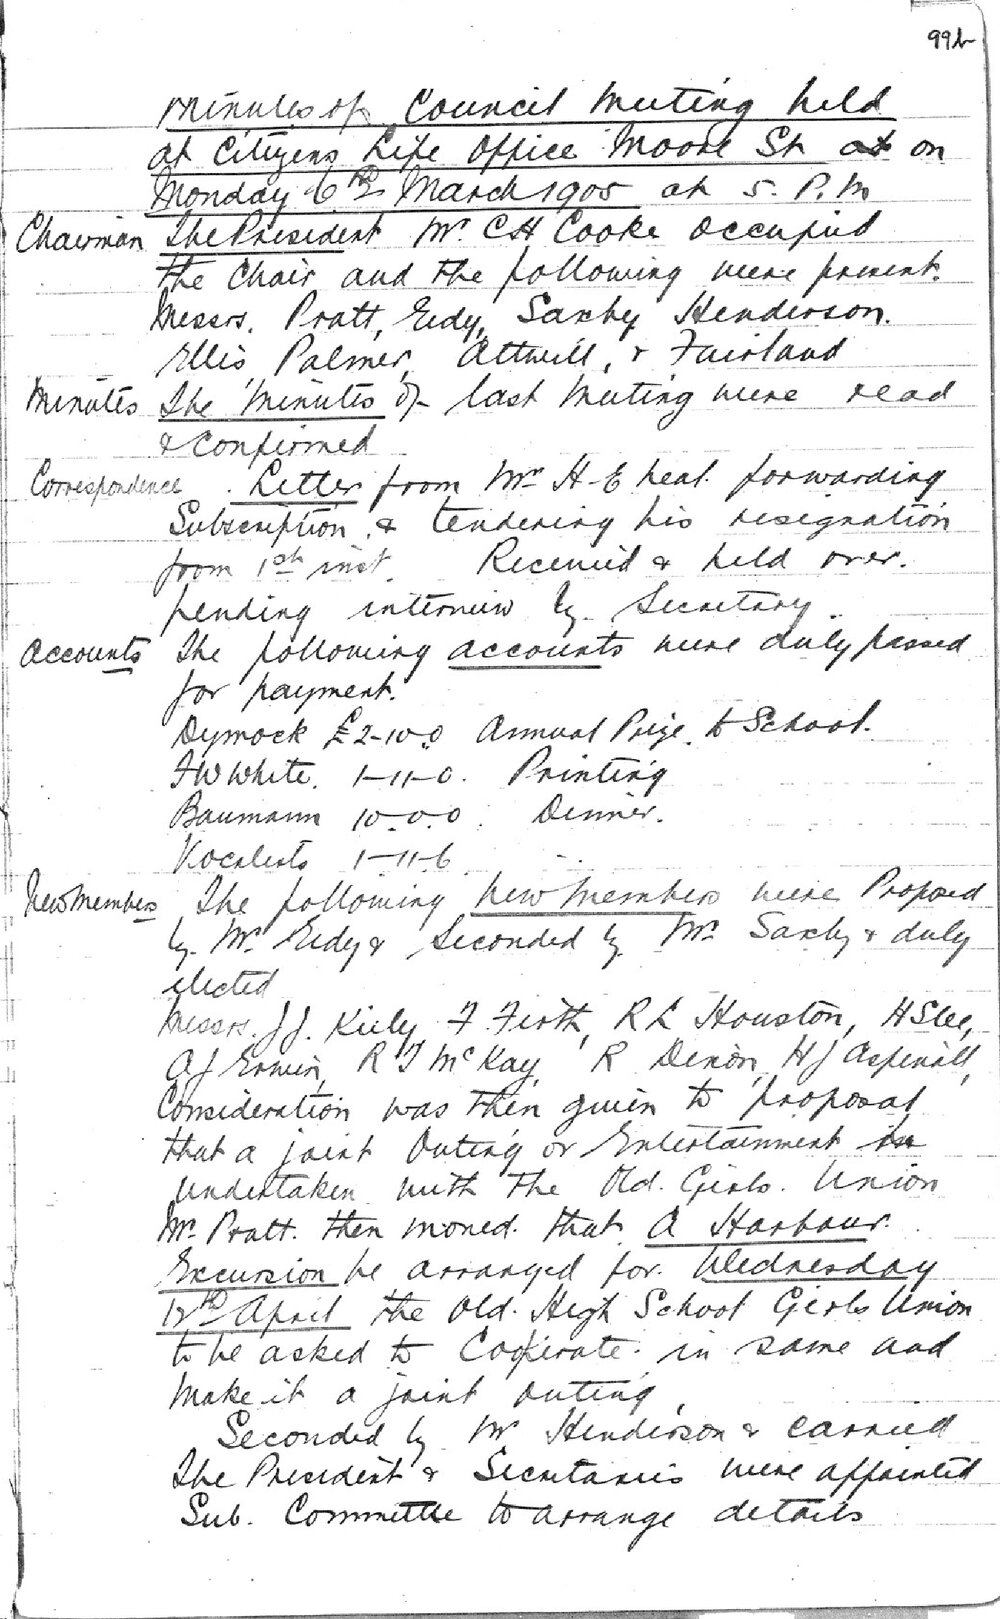 99b
Minutes of Council Meeting held
at Citizens Life Office Moore St at on
Monday 6th March 1905 at 5. P.M
Chairman The President Mr. C H Cooke occupied
the Chair and the following were present.
Messrs. Pratt, Eedy, Saxby Henderson.
Ellis, Palmer, Attwill, & Fairland
Minutes The Minutes of last Meeting were read
& confirmed
Correspondence. Letter from Mr H. E. forwarding
Subscription, & tendering his resignation
from 1st inst. Received & held over.
pending interview by Secretary.
Accounts The following accounts were duly passed
for payment.
Dymock £2-10-0 Annual Prize to School.
F W White. 1-11-0. Printing
Baumann 10-0-0. Dinner.
Vocalists 1-11-6
New Members The following New Members were Proposed
by Mr. Eedy & Seconded by Mr. Saxby & duly
elected
Messrs. J J. Kiely, F. Firth, R L Houston, H Slee,
A J Erwin, R T McKay, R Dixon, H J Aspinall,
Consideration was then given to proposal
that a joint Outing or Entertainment
undertaken with the Old. Girls. Union
Mr. Pratt. then moved. that. A Harbour.
Excursion be arranged for. Wednesday
12th April the Old. High School Girls Union
to be asked to Cooperate. in same and
make it a joint outing,
Seconded by Mr Henderson & carried
The President & Secretaries were appointed
Sub. Committee to arrange details